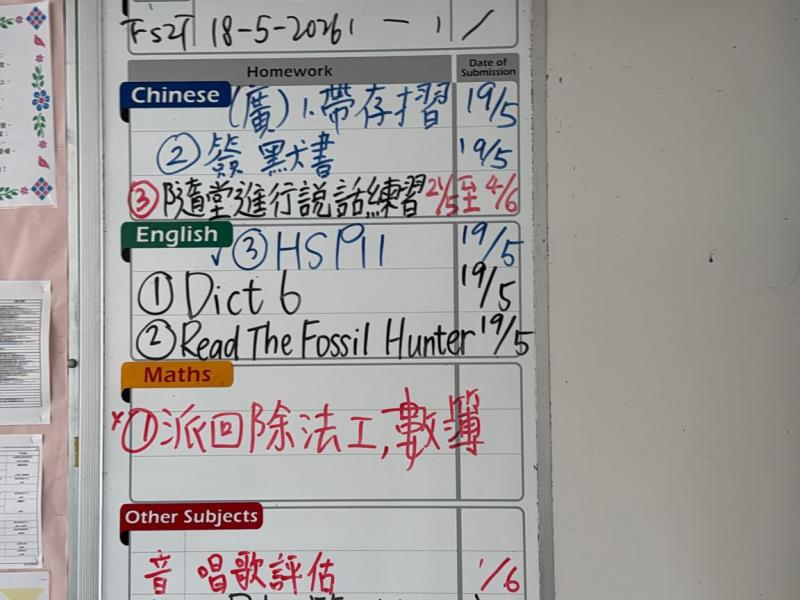 18-5-2026
Homework
Date of Submission
Chinese (廣) 1.帶存摺 19/5
② 簽默書 19/5
③ 隨堂進行說話練習 21/5至4/6
English ✓③ HS P11 19/5
① Dict 6 19/5
② Read The Fossil Hunter 19/5
Maths
*①派回除法工,數簿
Other Subjects
音 唱歌評估 1/6